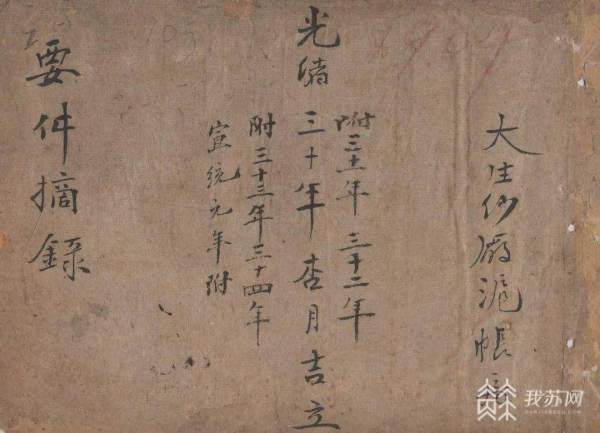 大生紗廠滬帳
附三十一年 三十二年
光緒三十年杏月吉立
附三十三年三十四年
宣統元年附
要件摘錄
我苏网